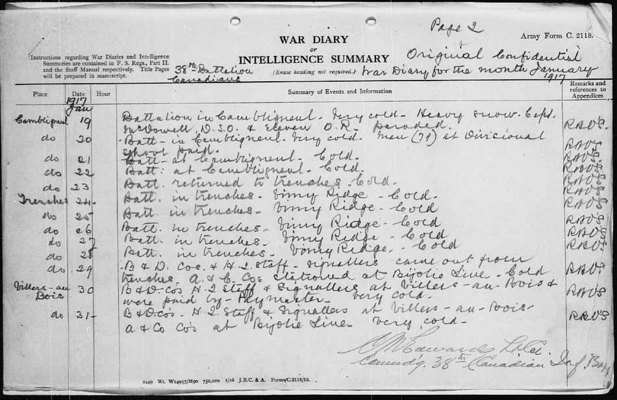 Page 2
WAR DIARY
or
INTELLIGENCE SUMMARY
Army Form C. 2118.
Original Confidential
Instructions regarding War Diaries and Intelligence
Summaries are contained in F. S. Regs., Part II.
and the Staff Manual respectively. Title Pages
will be prepared in manuscript.
38th Battalion
Canadians
(Erase heading not required.)
War Diary for the month January
1917
Place Date Hour Summary of Events and Information Remarks and references to Appendices
1917
Jan
Cambligneul 19 Battalion in Cambligneul. Very cold - Heavy snow. Capt.
McDowell, D.S.O. & Eleven O.R. Paraded.
do 20 Batt - in Cambligneul. Very cold. Men at Divisional
do 21 Batt - at Cambligneul - Cold.
do 22 Batt. at Cambligneul - Cold.
do 23 Batt. returned to trenches Cold.
Trenches 24 Batt. in trenches - Vimy Ridge - Cold
do 25 Batt. in trenches - Vimy Ridge - Cold
do 26 Batt. in trenches - Vimy Ridge - Cold
do 27 Batt. in trenches - Vimy Ridge - Cold
do 28 Batt. in trenches - Vimy Ridge - Cold
do 29 B & D. Cos. & H.Q. Staff - Signallers came out from
trenches. A & C. Cos stationed at Bajolle Line - Cold
Villers-au-Bois 30 B & D. Cos H.Q. Staff & Signallers at Villers-au-Bois &
were paid by - Paymaster - Very cold.
do 31 B & D. Cos - H.Q. Staff & Signallers at Villers-au-Bois
A & C Cos at Bajolle Line very cold.
Comndg. 38th Canadian Inf. Batt
2449 Wt. W14957/M90 750,000 1/16 J.B.C. & A. Forms/C.2118/12.